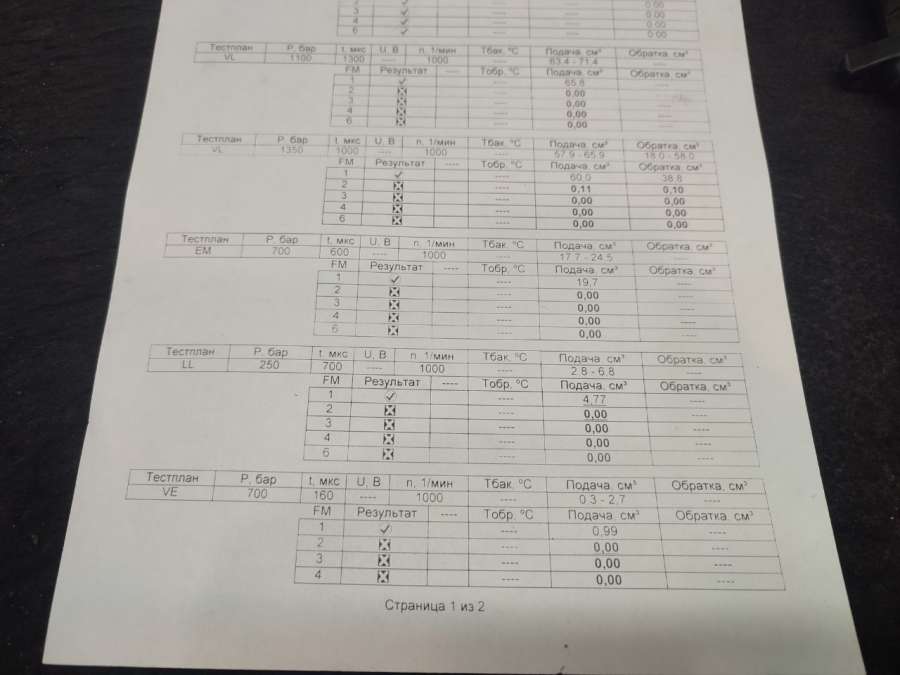 2 0.00
3 ✓ ---- ---- 0.00
4 ✓ ---- ---- 0.00
6 ✓ ---- ---- 0.00
Тестплан P, бар t, мкс U, В n, 1/мин Тбак. °С Подача, см³ Обратка, см³
VL 1100 1300 ---- 1000 ---- 63.4 - 71.4 ----
FM Результат ---- Тобр. °С Подача, см³ Обратка, см³
1 ✓ ---- 65.8 ----
2 ☒ ---- 0,00 ----
3 ☒ ---- 0,00 ----
4 ☒ ---- 0,00 ----
6 ☒ ---- 0,00 ----
Тестплан P, бар t, мкс U, В n, 1/мин Тбак. °С Подача, см³ Обратка, см³
VL 1350 1000 ---- 1000 ---- 57.9 - 65.9 18.0 - 58.0
FM Результат ---- Тобр. °С Подача, см³ Обратка, см³
1 ✓ ---- 60.0 38.8
2 ☒ ---- 0,11 0,10
3 ☒ ---- 0,00 0,00
4 ☒ ---- 0,00 0,00
6 ☒ ---- 0,00 0,00
Тестплан P, бар t, мкс U, В n, 1/мин Тбак. °С Подача, см³ Обратка, см³
EM 700 600 ---- 1000 ---- 17.7 - 24.5 ----
FM Результат ---- Тобр. °С Подача, см³ Обратка, см³
1 ✓ ---- 19,7 ----
2 ☒ ---- 0,00 ----
3 ☒ ---- 0,00 ----
4 ☒ ---- 0,00 ----
6 ☒ ---- 0,00 ----
Тестплан P, бар t, мкс U, В n, 1/мин Тбак. °С Подача, см³ Обратка, см³
LL 250 700 ---- 1000 ---- 2.8 - 6.8 ----
FM Результат ---- Тобр, °С Подача, см³ Обратка, см³
1 ✓ ---- 4,77 ----
2 ☒ ---- 0,00 ----
3 ☒ ---- 0,00 ----
4 ☒ ---- 0,00 ----
6 ☒ ---- 0,00 ----
Тестплан P, бар t, мкс U, В n, 1/мин Тбак. °С Подача, см³ Обратка, см³
VE 700 160 ---- 1000 ---- 0.3 - 2.7 ----
FM Результат ---- Тобр, °С Подача, см³ Обратка, см³
1 ✓ ---- 0,99 ----
2 ☒ ---- 0,00 ----
3 ☒ ---- 0,00 ----
4 ☒ ---- 0,00 ----
Страница 1 из 2